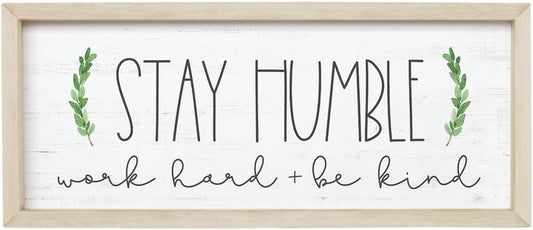 STAY HUMBLE
work hard + be kind